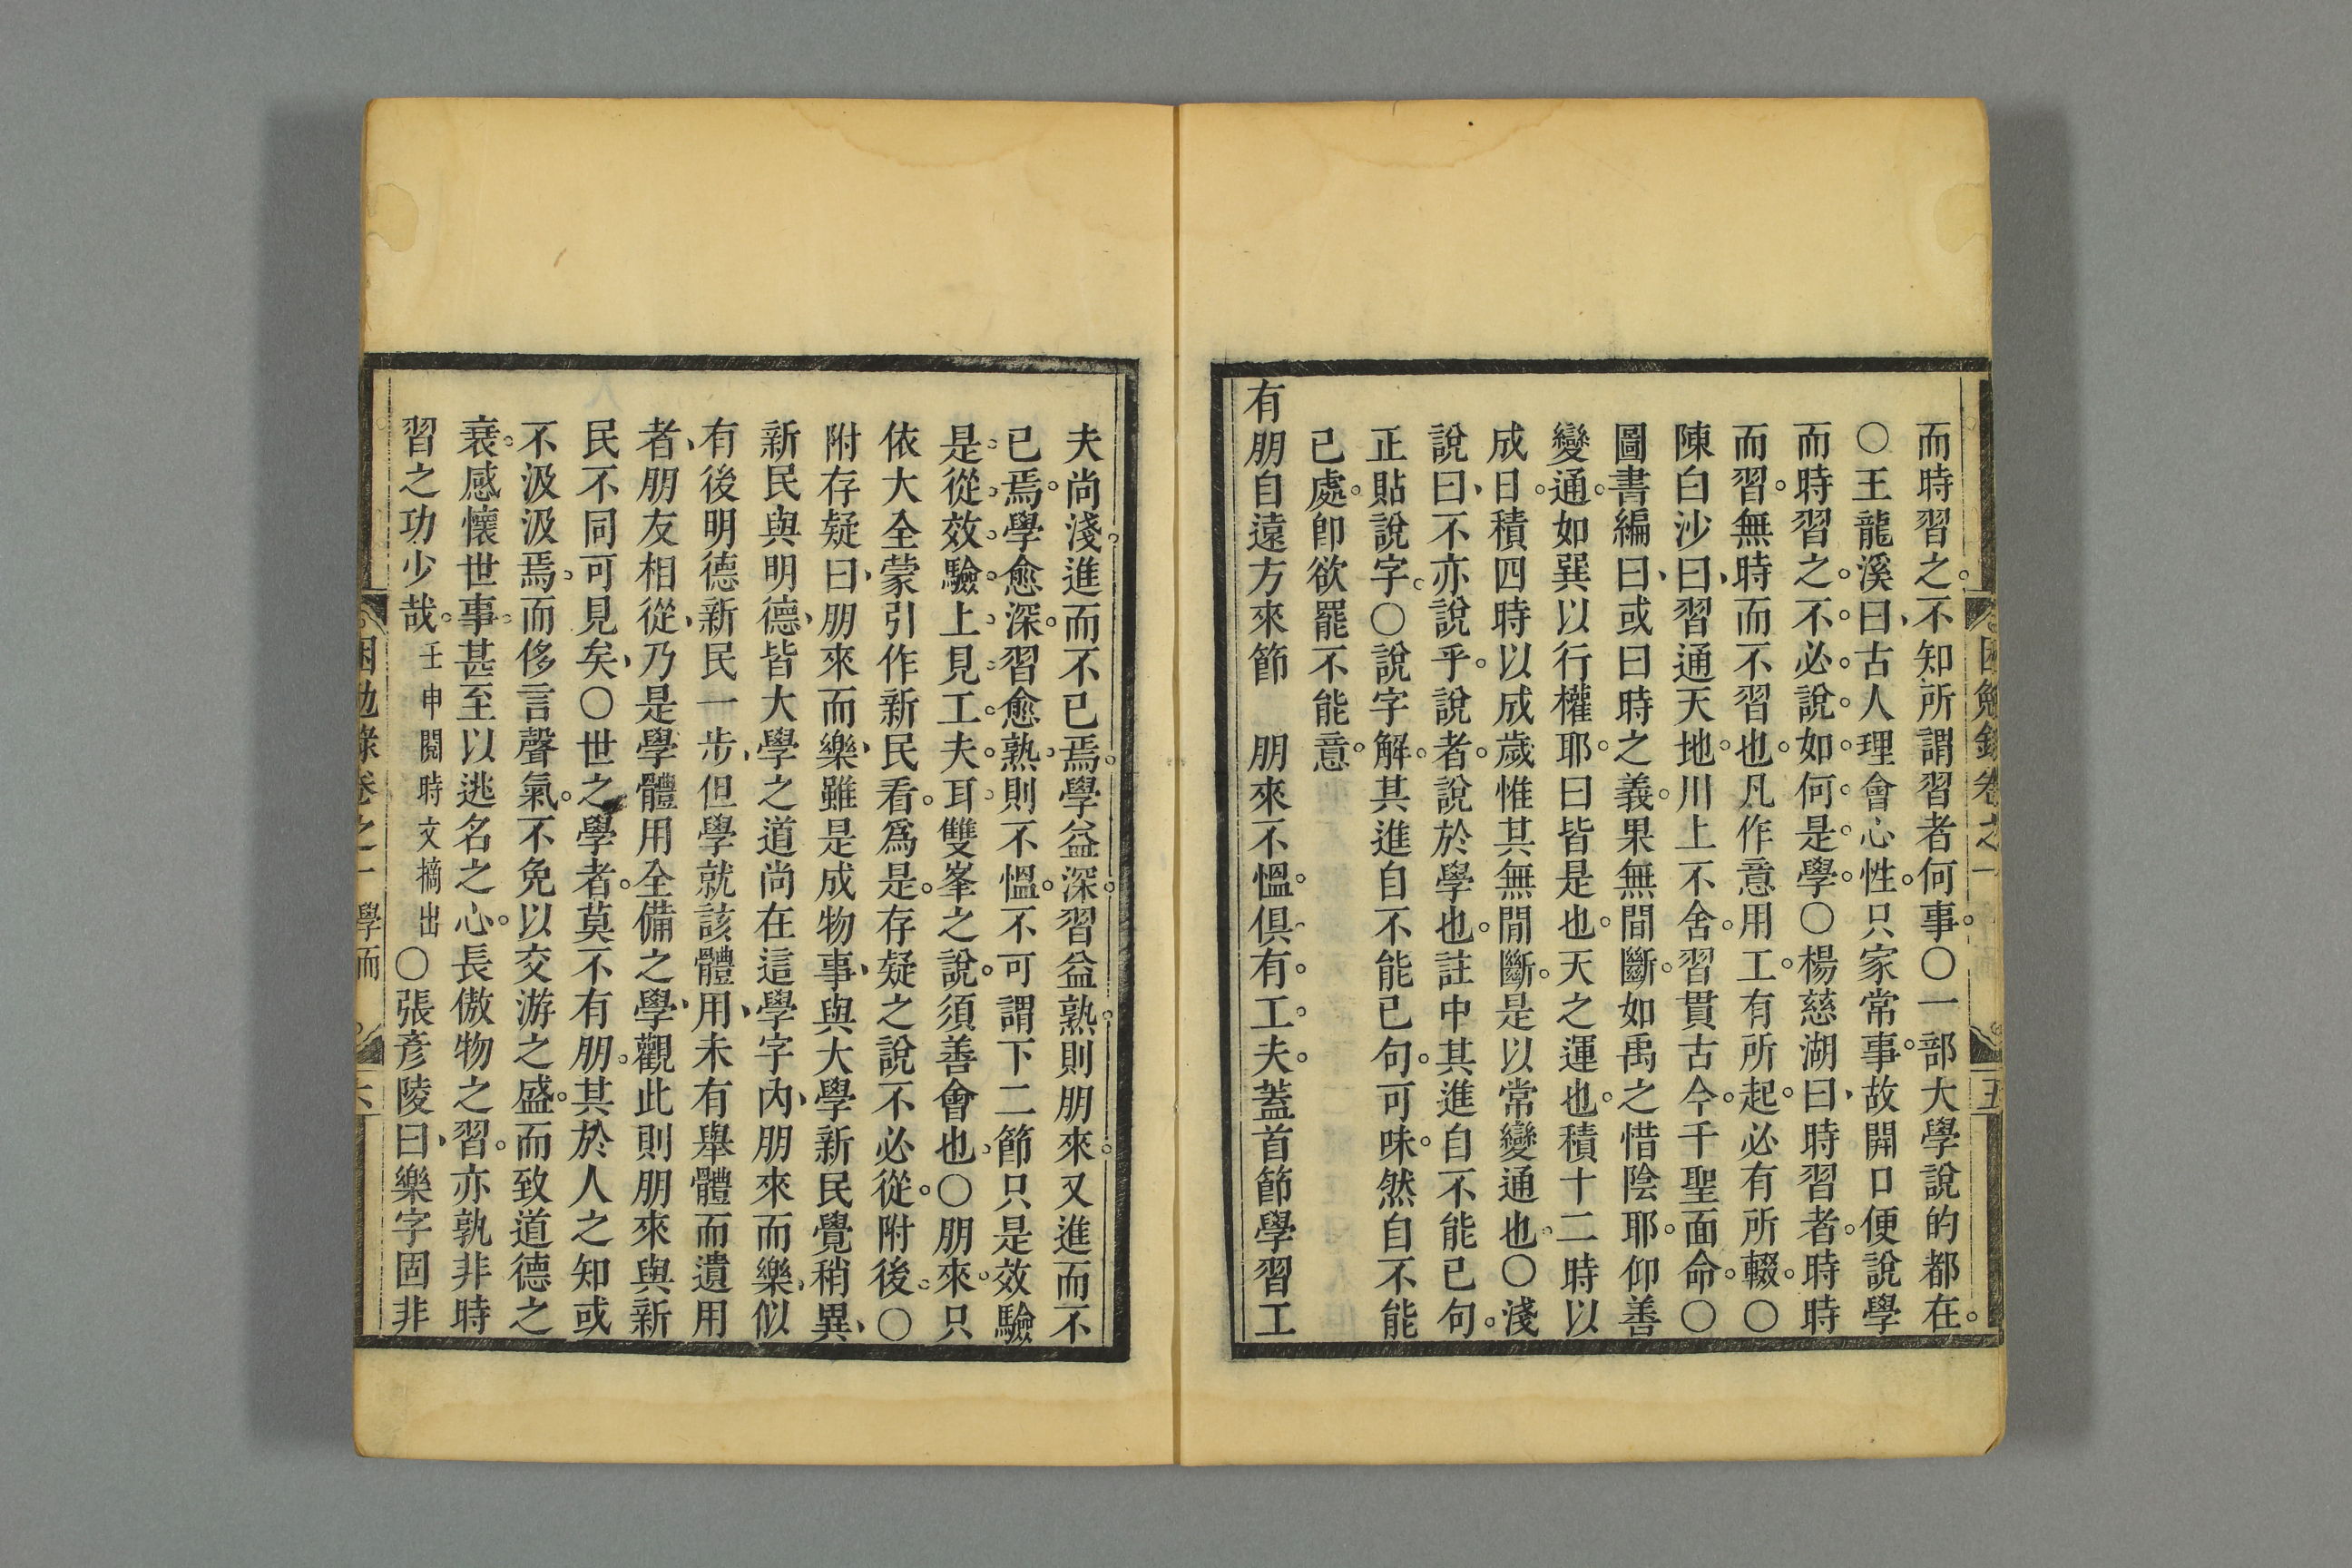 困勉錄卷之一
五
而時習之。不知所謂習者何事。○一部大學說的都在。
○王龍溪曰、古人理會心性。只家常事。故開口便說學
而時習之。不必說。如何是學。○楊慈湖曰、時習者。時時
而習。無時而不習也。凡作意用工。有所起。必有所輟。○
陳白沙曰、習通天地。川上不舍。習貫古今。千聖面命。○
圖書編曰、或曰時之義。果無間斷。如禹之惜陰耶。仰善
變通。如巽以行權耶。曰皆是也。天之運也。積十二時以
成日。積四時以成歲。惟其無間斷。是以常變通也。○淺
說曰、不亦說乎。說者。說於學也。註中其進自不能已句。
正貼說字。○說字解。其進自不能已句。可味。然自不能
已處。卽欲罷不能意。
有朋自遠方來節　朋來不慍。俱有。工夫。蓋首節學習工
夫尚淺。進而不已焉。學益深。習益熟。則朋來。又進而不
已焉。學愈深。習愈熟。則不慍。不可謂下二節只是效驗
是。從。效。驗。上。見。工。夫。耳。雙峯之說。須善會也。○朋來。只
依大全蒙引作新民看。爲是。存疑之說不必從。附後。○
附存疑曰、朋來而樂、雖是成物事、與大學新民覺稍異、
新民與明德、皆大學之道、尚在這學字內、朋來而樂、似
有後明德新民一步、但學就該體用、未有舉體而遺用
者、朋友相從、乃是學體用全備之學、觀此則朋來與新
民不同可見矣、○世之學者。莫不有朋。其於人之知。或
不汲汲焉。而侈言聲氣。不免以交游之盛。而致道德之
衰。感懷世事。甚至以逃名之心。長傲物之習。亦孰非時
習之功少哉。壬申閱時文摘出○張彥陵曰、樂字固非
學而
六